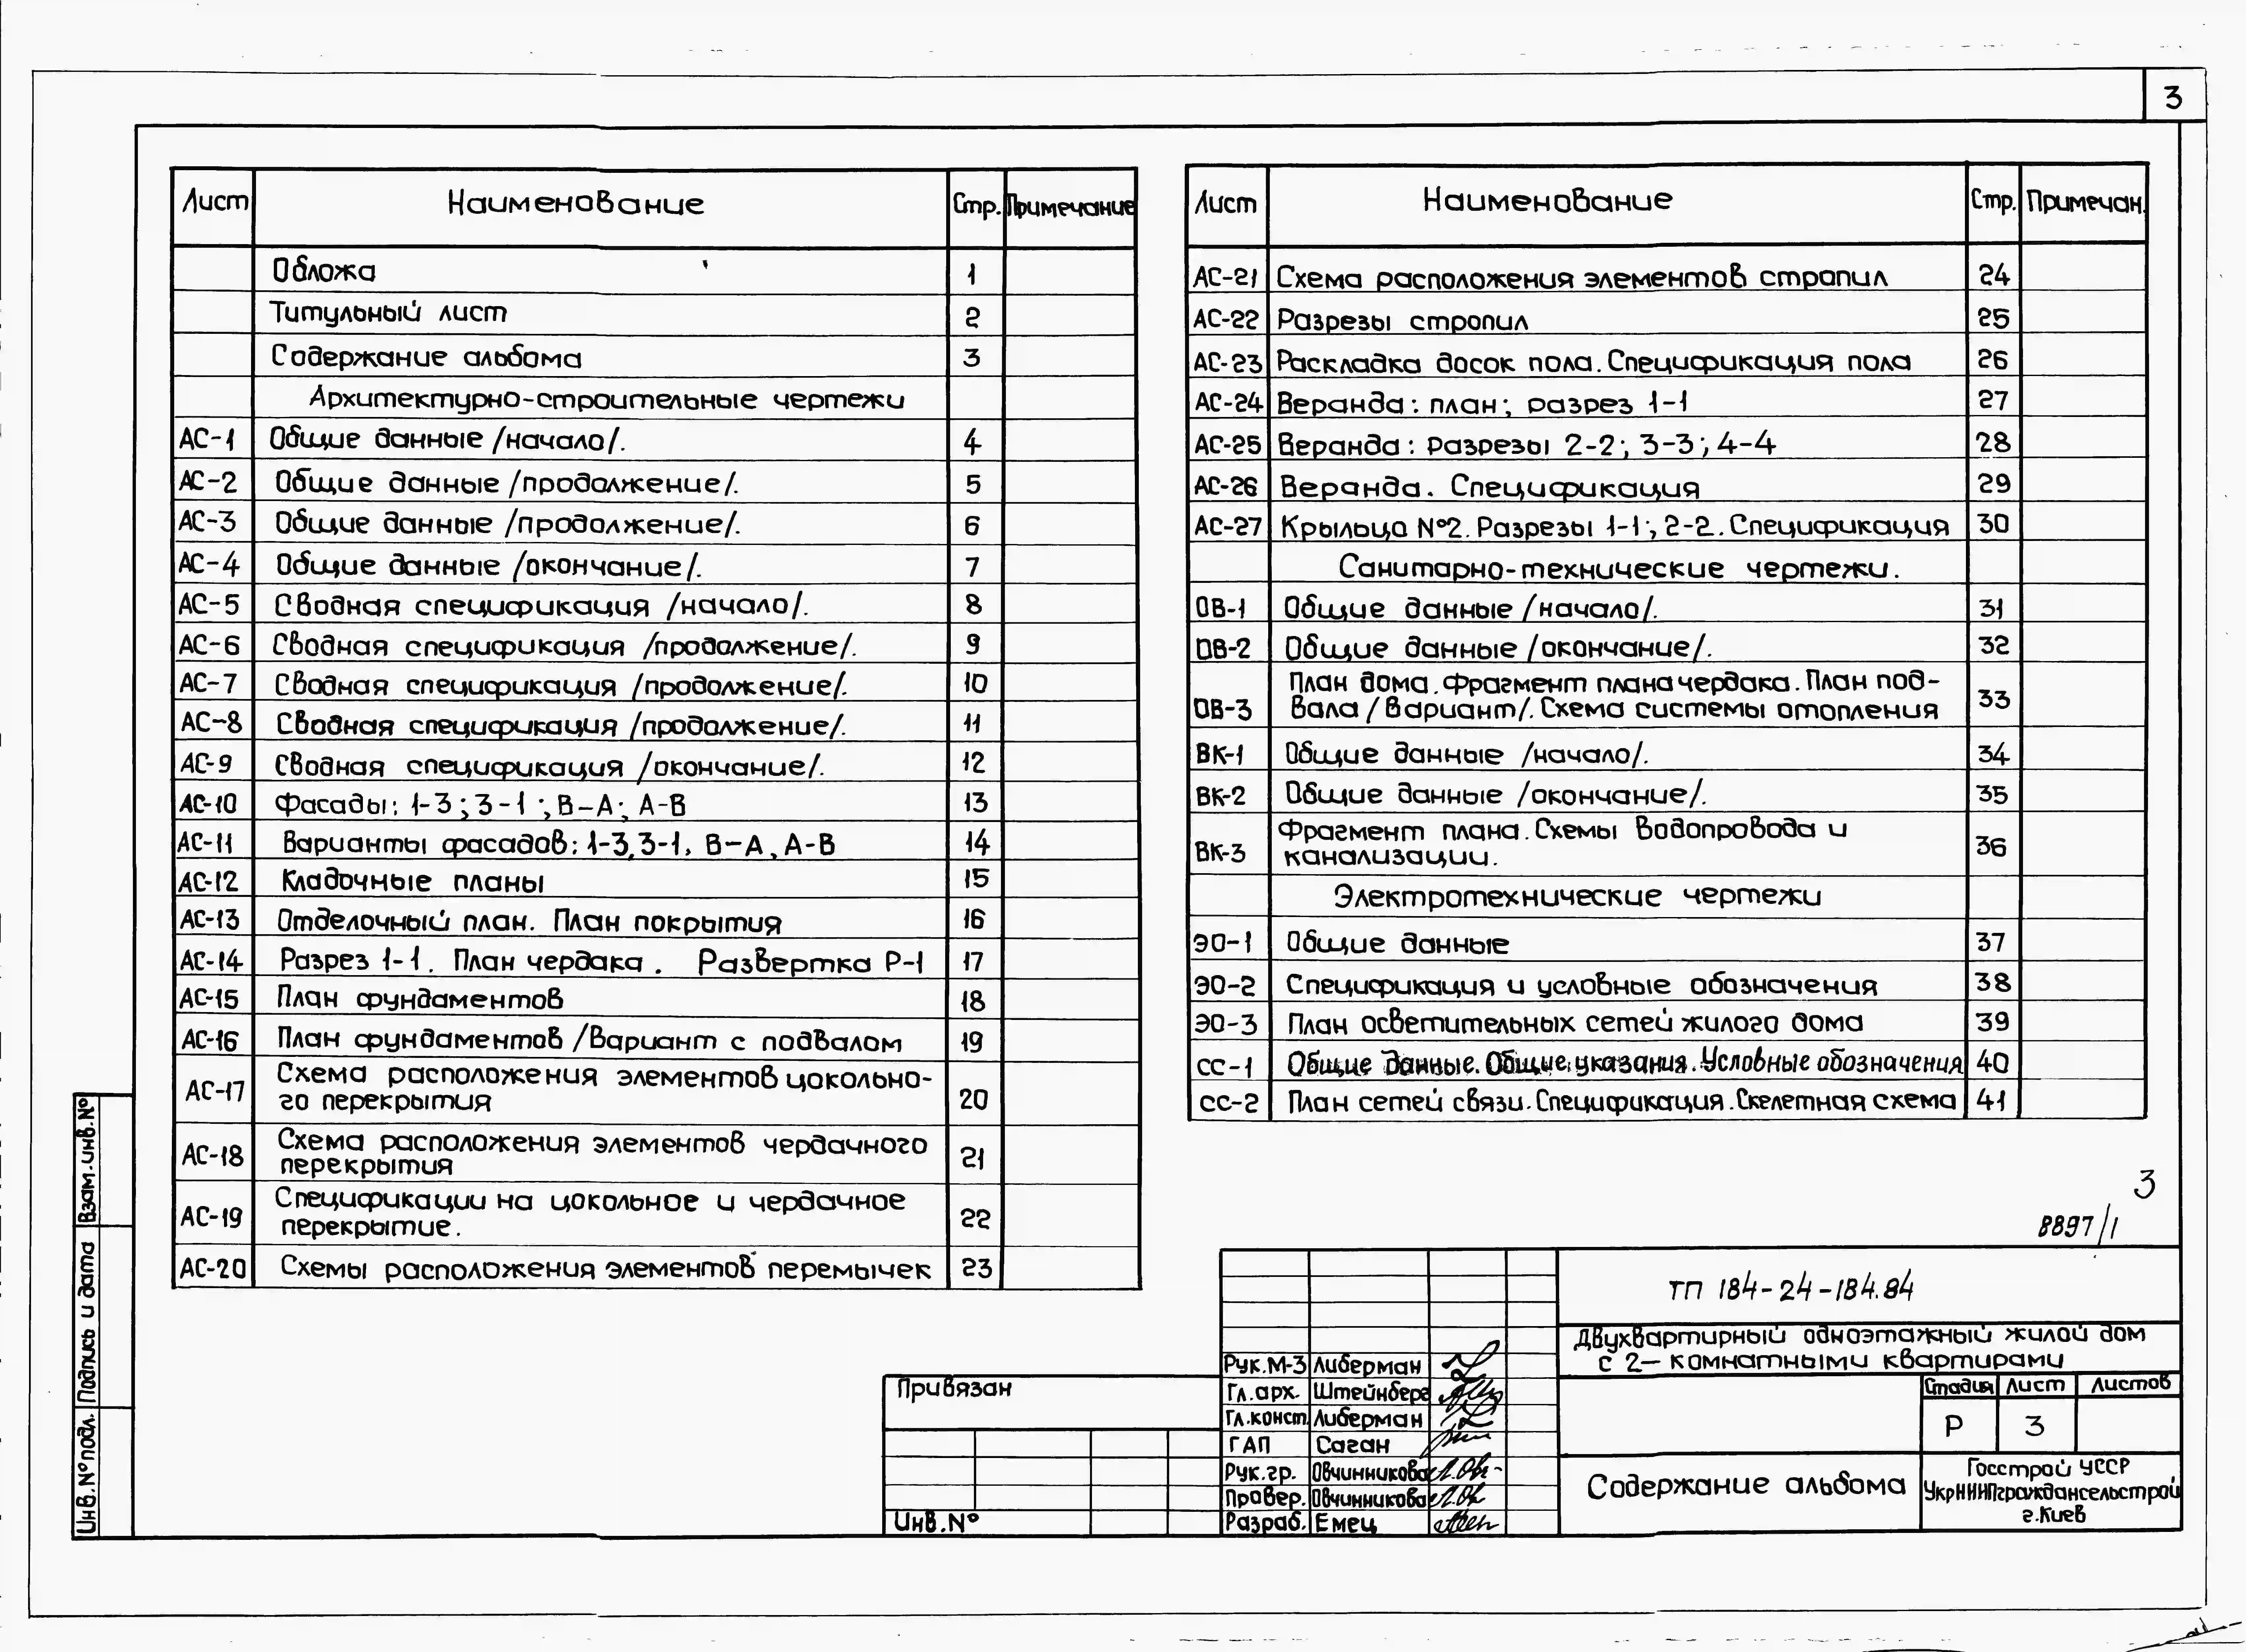 3
Лист Наименование Стр. Примечание
Обложа 1
Титульный лист 2
Содержание альбома 3
Архитектурно-строительные чертежи
АС-1 Общие данные /начало/. 4
АС-2 Общие данные /продолжение/. 5
АС-3 Общие данные /продолжение/. 6
АС-4 Общие данные /окончание/. 7
АС-5 Сводная спецификация /начало/. 8
АС-6 Сводная спецификация /продолжение/. 9
АС-7 Сводная спецификация /продолжение/. 10
АС-8 Сводная спецификация /продолжение/. 11
АС-9 Сводная спецификация /окончание/. 12
АС-10 Фасады: 1-3; 3-1; В-А; А-В 13
АС-11 Варианты фасадов: 1-3, 3-1, В-А, А-В 14
АС-12 Кладочные планы 15
АС-13 Отделочный план. План покрытия 16
АС-14 Разрез 1-1. План чердака. Развертка Р-1 17
АС-15 План фундаментов 18
АС-16 План фундаментов /Вариант с подвалом 19
АС-17 Схема расположения элементов цокольно-
го перекрытия 20
АС-18 Схема расположения элементов чердачного
перекрытия 21
АС-19 Спецификации на цокольное и чердачное
перекрытие. 22
АС-20 Схемы расположения элементов перемычек 23
Лист Наименование Стр. Примечан.
АС-21 Схема расположения элементов стропил 24
АС-22 Разрезы стропил 25
АС-23 Раскладка досок пола. Спецификация пола 26
АС-24 Веранда: план; разрез 1-1 27
АС-25 Веранда: разрезы 2-2; 3-3; 4-4 28
АС-26 Веранда. Спецификация 29
АС-27 Крыльцо №2. Разрезы 1-1; 2-2. Спецификация 30
Санитарно-технические чертежи.
ОВ-1 Общие данные /начало/. 31
ОВ-2 Общие данные /окончание/. 32
ОВ-3 План дома. Фрагмент плана чердака. План под-
вала /вариант/. Схема системы отопления 33
ВК-1 Общие данные /начало/. 34
ВК-2 Общие данные /окончание/. 35
ВК-3 Фрагмент плана. Схемы водопровода и
канализации. 36
Электротехнические чертежи
ЭО-1 Общие данные 37
ЭО-2 Спецификация и условные обозначения 38
ЭО-3 План осветительных сетей жилого дома 39
СС-1 Общие данные. Общие указания. Условные обозначения 40
СС-2 План сетей связи. Спецификация. Скелетная схема 41
3
8897/1
ТП 184-24-184.84
Двухквартирный одноэтажный жилой дом
с 2-комнатными квартирами
Стадия Лист Листов
Р 3
Содержание альбома
Госстрой УССР
УкрНИИПграждансельстрой
г.Киев
Рук.М-3 Либерман
Гл.арх. Штейнберг
Гл.конст. Либерман
ГАП Саган
Рук.гр. Овчинникова
Провер. Овчинникова
Разраб. Емец
Привязан
Инв.№
Взам.инв.№
Подпись и дата
Инв.№подл.